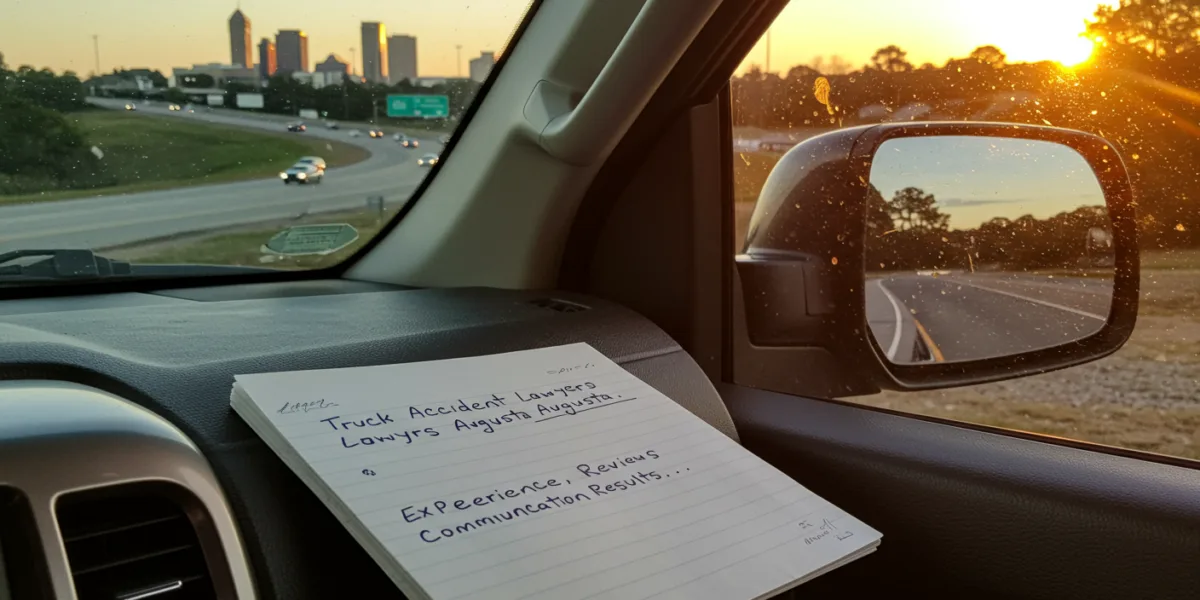 Truck Accident Lawyers
Lawyrs Augusta Augusta.
Expeerience, Reviews
Communcation Results...